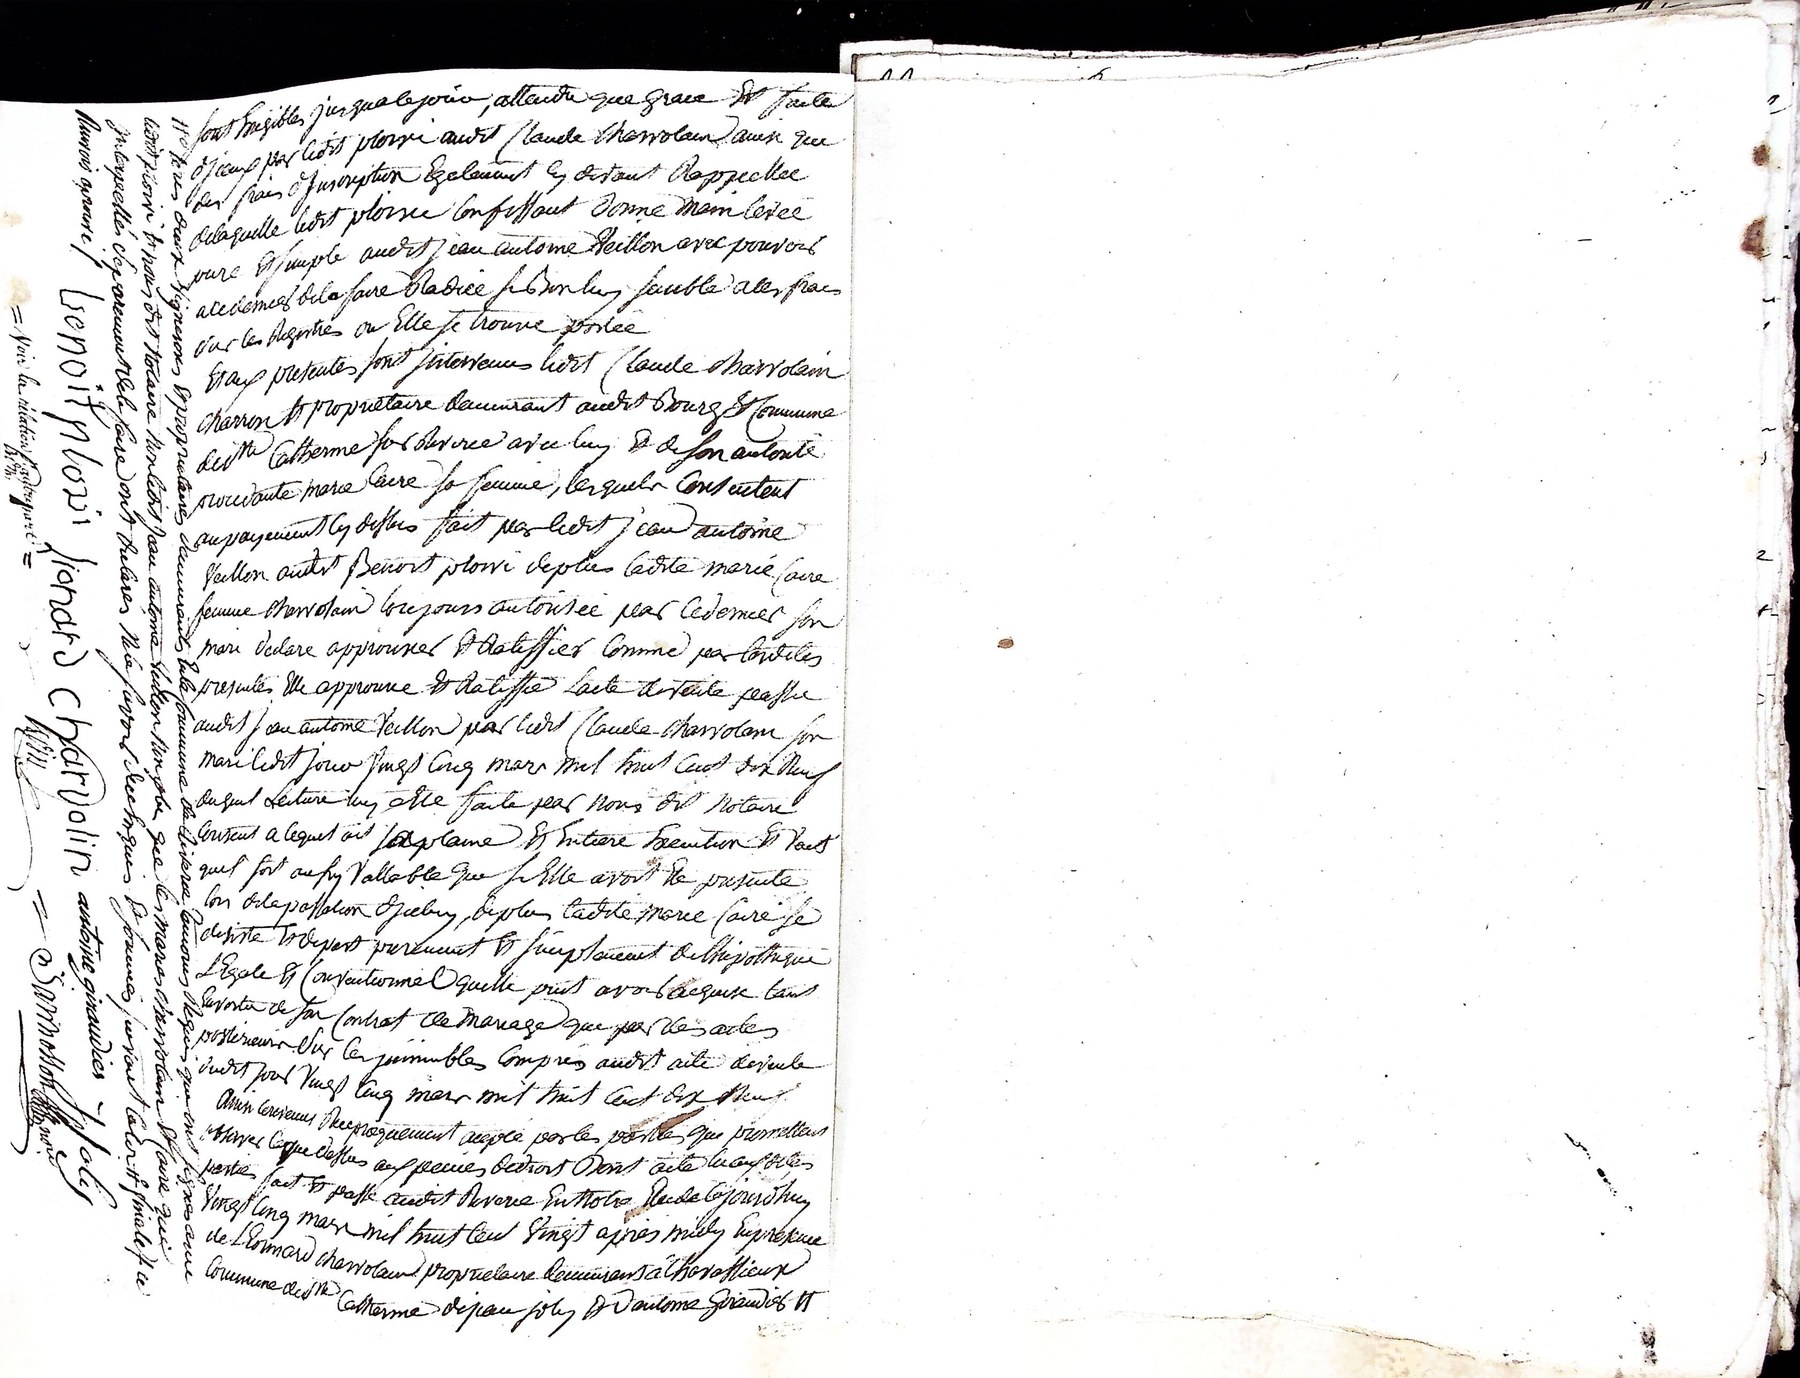 sont Exigibles jusqua ce jour, attendu que grace Est faite
d'iceux par ledit ploivi audit Claude Charvolain ainsi que
des frais d'Inscription Egalement cy devant Rappellée
delaquelle ledit ploivi Confessant donne main levée
pure Et simple audit jean antoine Veillon avec pouvoir
a ce dernier de la faire Radiée si Bon luy semble a ses frais
sur les Registres ou Elle se trouve portée
Et aux presentes sont Intervenus ledit Claude Charvolain
charron Et proprietaire demeurant audit Bourg Et Commune
de Ste Catherine sur Riverie avec luy Et de son autorité
procedante marie Caire sa femme, lesquels Consentent
au payement cy dessus fait par ledit jean antoine
Veillon audit Benoit ploivi deplus ladite marie Caire
femme Charvolain toujours autorisée par ce dernier son
mari declare approuver Et Ratiffier Comme par lesdites
presentes Elle approuve Et Ratiffie l'acte de vente passée
audit jean antoine Veillon par ledit Claude Charvolain son
mari ledit jour Vingt Cinq mars mil huit Cent dix Neuf
duquel Lecture luy a Eté faite par Nous dit Notaire
Consent a lequel ait sa plaine Et Entiere Execution Et Veut
quil soit aussy Vallable que si Elle avoit Eté presente
lors de la passation d'iceluy, deplus ladite marie Caire se
desiste Et depart purement Et simplement de l'hipotheque
L'Egale Et Conventionnel quelle peut avoir acquise tant
En vertu de son Contrat de Mariage que par des actes
posterieurs Sur les immeubles Compris audit acte de vente
dudit jour Vingt Cinq mars mil huit Cent dix Neuf
Ainsi Convenus Reciproquement accepté par les parties que promettent
observer ce que dessus aux peines de droit Dont acte lu auxdites
parties fait Et passé audit Riverie En Notre Etude Cejourd'huy
Vingt Cinq mars mil huit Cent Vingt apres midy En presence
de LEonnard Charvolain proprietaire demeurant à Chavassieux
Commune de Ste Catherine de jean joly Et d'antoine Giraudier Et
tres deux Vignerons Et proprietaires demeurants En la Commune de Riverie temoins Requis qui ont signés avec
ledit ploivi Et Nous dit Notaire Non ledit jean antoine Veillon Non plus que les mariés Charvolain Et Caire qui
Interpellés separement de le faire ont declarés Ne le savoir de ce Enquis Et sommés suivant la loi
Benoit ploivi lionard Chardolin antoine giraudier J Joly
= Voir la relation d'autre part =
= Barmont